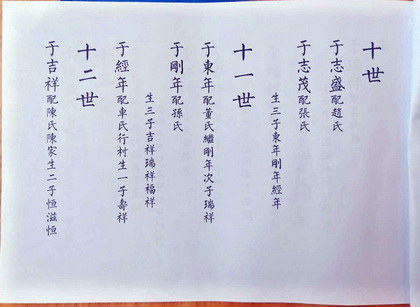 十世
于志盛配趙氏
于志茂配張氏
生三子東年剛年經年
十一世
于東年配董氏繼剛年次子瑞祥
于剛年配孫氏
生三子吉祥瑞祥福祥
于經年配車氏行村生一子壽祥
十二世
于吉祥配陳氏陳家生二子恒滋恒